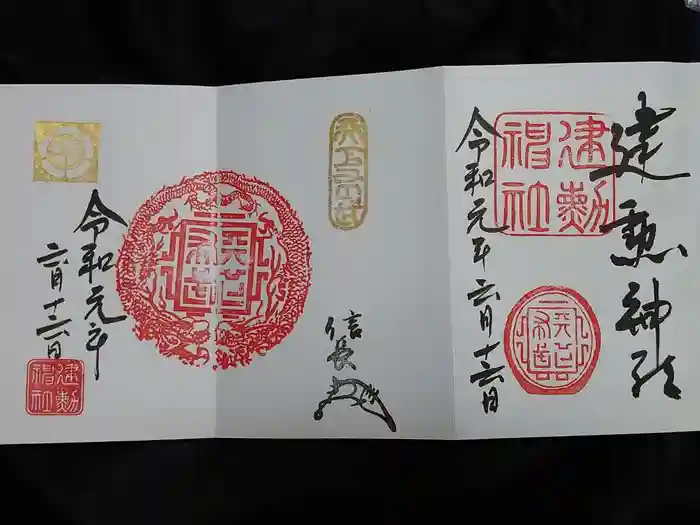 建勲神社
令和元年六月十六日
建勲
神社
天下
布武
天下布武
信長
天下
布武
令和元年
六月十六日
建勲
神社